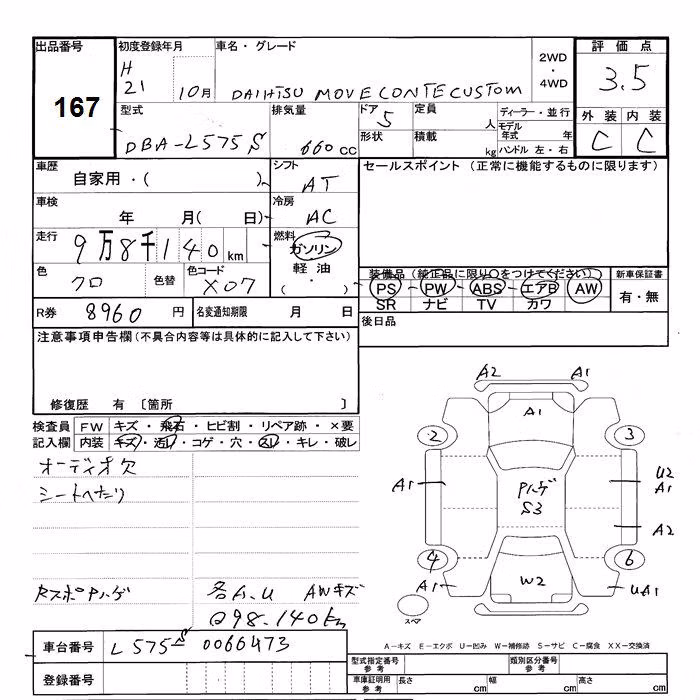 出品番号
167
初度登録年月
H
21
10月
車名・グレード
DAIHTSU MOVE CONTE CUSTOM
2WD
・
4WD
評価点
3.5
外装 内装
C C
型式
DBA-L575S
排気量
660cc
ドア
5
形状
定員
人
積載
kg
ディーラー・並行
モデル年式 年
ハンドル 左・右
車歴
自家用・( )
シフト
AT
セールスポイント (正常に機能するものに限ります)
車検
年 月( 日)
冷房
AC
走行
9万8千140km
燃料
ガソリン
軽油
( ・ )
色
クロ
色替
色コード
X07
装備品 (純正品に限り○をつけてください)
PS PW ABS エアB AW
SR ナビ TV カワ
新車保証書
有・無
R券 8960円
名変通知期限 月 日
後日品
注意事項申告欄(不具合内容等は具体的に記入して下さい)
修復歴 有 〔箇所 〕
検査員記入欄
FW キズ・飛石・ヒビ割・リペア跡・×要
内装 キズ・汚レ・コゲ・穴・スレ・キレ・破レ
オーディオ欠
シートヘタリ
RスポPハゲ
各A.U AWキズ
198.140km
車台番号 L575S-0066473
登録番号
A2 A1
A1
2 3
A1
Pハゲ
S3
U2
A1
A2
4 6
A1
W2
UA1
スペア
A-キズ E-エクボ U-凹み W-補修跡 S-サビ C-腐食 XX-交換済
型式指定番号
参考
類別区分番号
参考
車庫証明用
参考
長さ cm 幅 cm 高さ cm